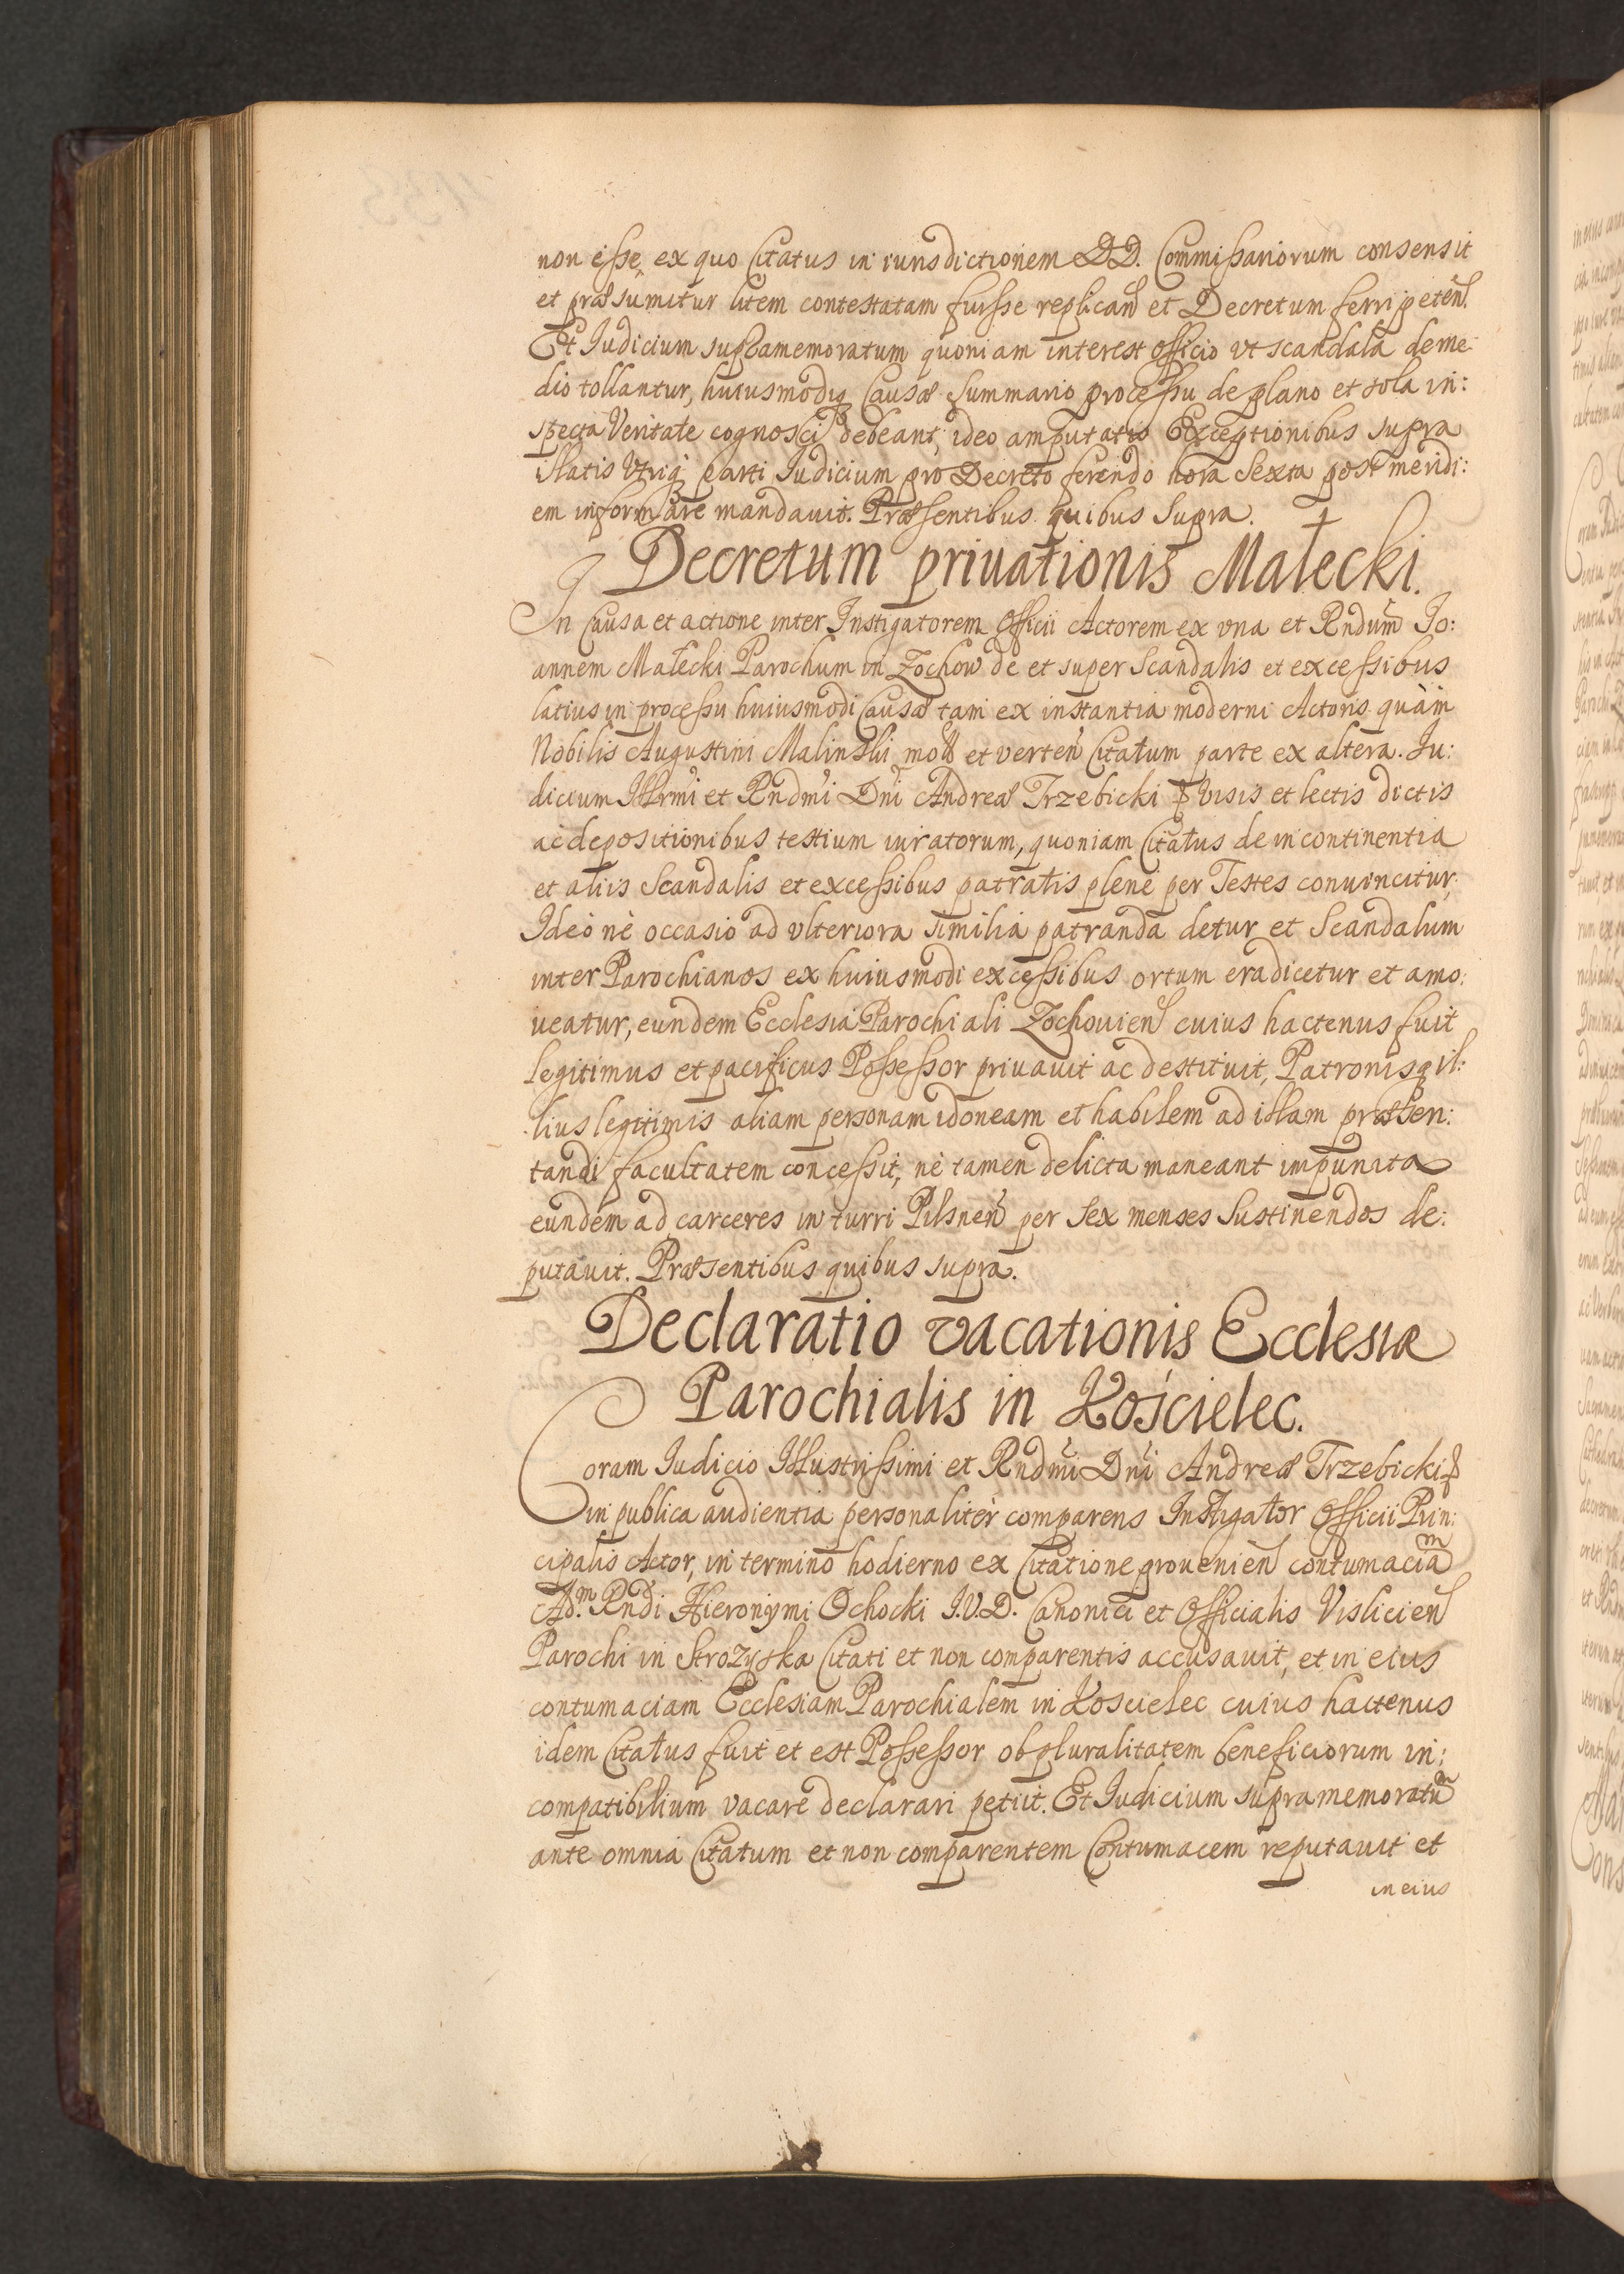 non esse, ex quo Citatus in iurisdictionem DD. Commissariorum consensit
et præsumitur litem contestatam fuisse replicañ et Decretum ferri peteñ.
Et Judicium supramemoratum quoniam interest Officio vt scandala de me
dio tollantur, huiusmodiq Causæ Summario processu de plano et sola in:
specta Veritate cognosci debeant, ideo amputatis Exceptionibus supra
illatis Vtriq parti Judicium pro Decreto ferendo hora Sexta post meridi:
em informare mandauit. Præsentibus quibus Supra.
Decretum priuationis Małecki.
In Causa et actione inter Instigatorem Officii Actorem ex vna et Rndum Jo:
annem Małecki Parochum in Zochow de et super Scandalis et excessibus
latius in processu huiusmodi Causæ tam ex instantia moderni Actoris quàm
Nobilis Augustini Malinski mot et verteñ Citatum parte ex altera. Ju:
dicium Illrmi et Rndmi Dni Andreæ Trzebicki Visis et lectis dictis
ac depositionibus testium iuratorum, quoniam Citatus de incontinentia
et aliis Scandalis et excessibus patratis plenè per Testes conuincitur,
Ideò nè occasio ad vlteriora similia patranda detur et Scandalum
inter Parochianos ex huiusmodi excessibus ortum eradicetur et amo:
ueatur, eundem Ecclesia Parochiali Zochouień cuius hactenus fuit
legitimus et pacificus Possessor priuauit ac destituit, Patronisq il:
lius legitimis aliam personam idoneam et habilem ad illam præsen:
tandi facultatem concessit, nè tamen delicta maneant impunita
eundem ad carceres in turri Pilsneñ per Sex menses Sustinendos de:
putauit. Præsentibus quibus supra.
Declaratio vacationis Ecclesiæ
Parochialis in Kościelec.
Coram Iudicio Illustrissimi et Rndmi Dni Andreæ Trzebicki
in publica audientia personalitèr comparens Instigator Officii Prin:
cipalis Actor, in termino hodierno ex Citatione prouenień contumaciam
Adm. Rndi Hieronymi Ochocki I.V.D. Canonici et Officialis Vislicień
Parochi in Strożyska Citati et non comparentis accusauit, et in eius
contumaciam Ecclesiam Parochialem in Koscielec cuius hactenus
idem Citatus fuit et est Possessor ob pluralitatem beneficiorum in:
compatibilium vacare declarari petiit. Et Iudicium supramemoratũ
ante omnia Citatum et non comparentem Contumacem reputauit et
in eius